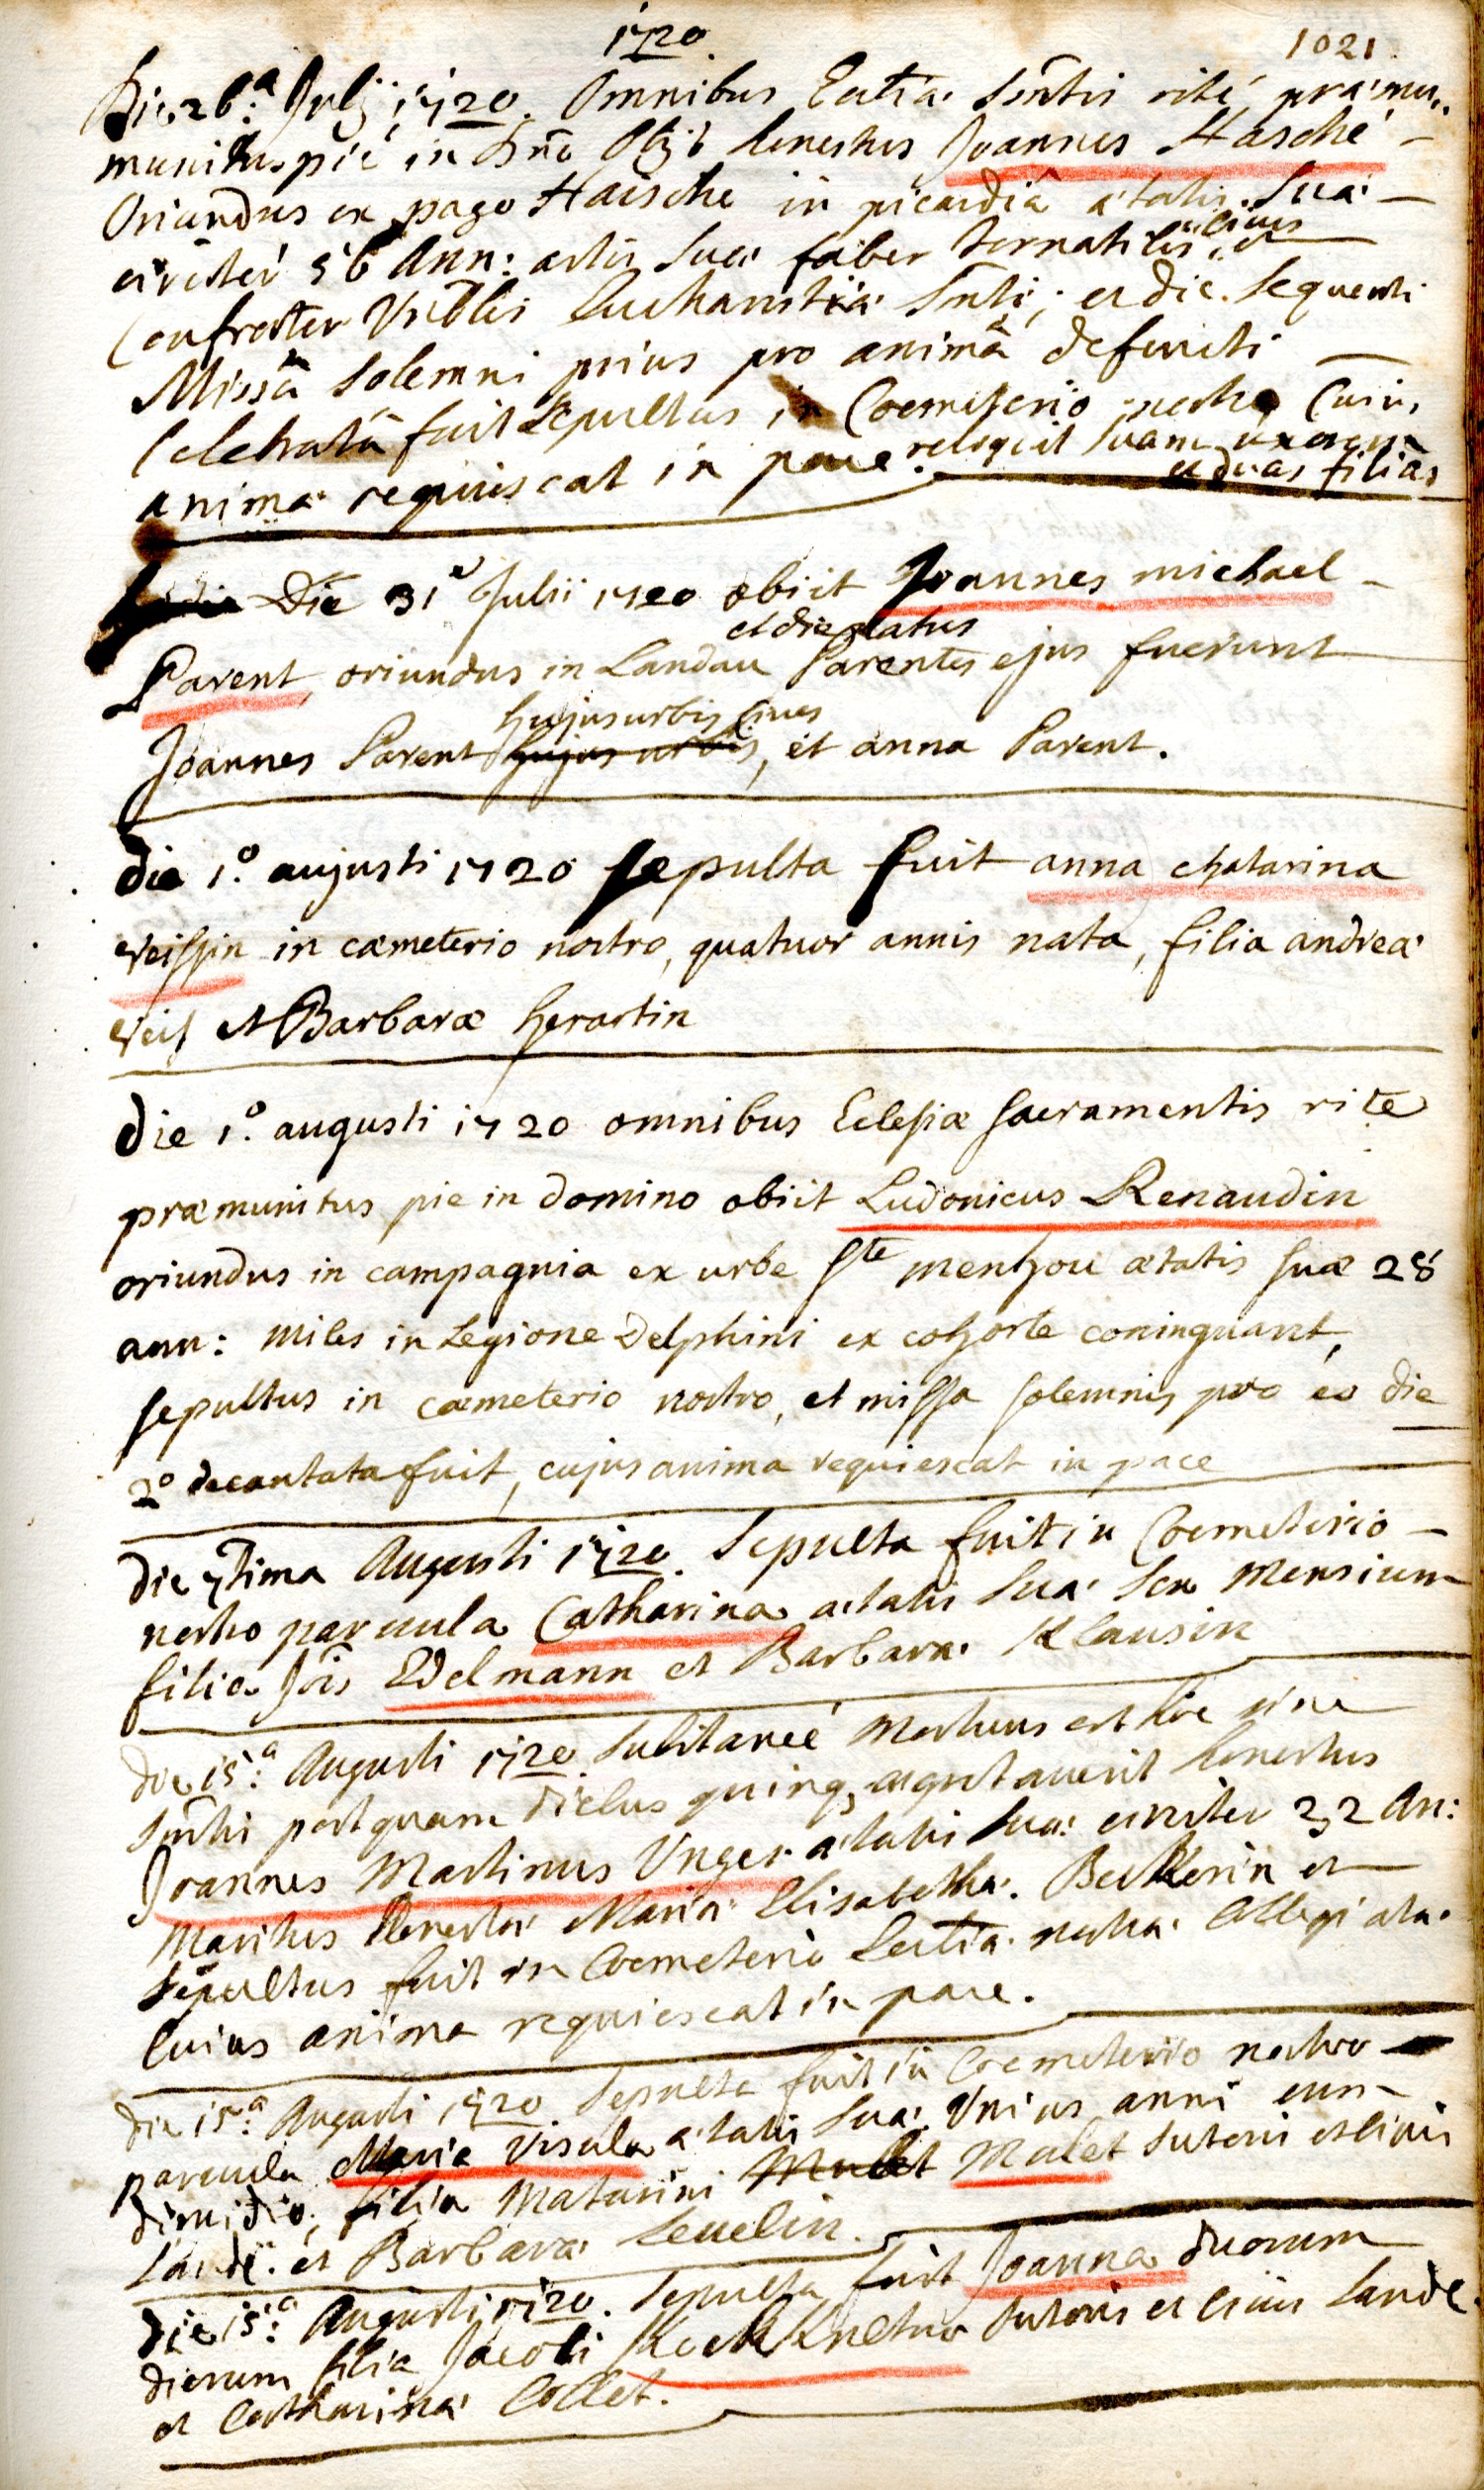 1720.
1021.
Die 26.a Julij 1720. Omnibus Ecclia Sm̄tis rité præmu,,
munitus pié in Dn̄o Obijt honestus Joannes Hasché –
Oriundus ex pago Haische in picardiâ ætatis Suæ –
circiter 56 Ann: artis Suæ faber tornatilis, civis et
Confrater Vn̄blis Eucharistiæ Sm̄ti; et die Sequenti
Missâ Solemni prius pro animâ defuncti
Celebratâ fuit Sepultus in Coemeterio nostro Cuius
anima requiscat in pace. reliquit Suam uxorem
et duas filias
Die 31a Julii 1720 obiit Joannes michael –
et die natus
Parent, oriundus in Landau Parentes ejus fuerunt
hujus urbis cives
Joannes Parent hujus urbis, et anna Parent.
die 1.o augusti 1720 sepulta fuit anna chatarina
veissin in cæmeterio nostro, quatuor annis nata, filia andreæ
veis et Barbaræ herastin
die 1.o augusti 1720 omnibus Eclesiæ sacramentis rite
præmunitus pie in domino obiit Ludovicus Renaudin
oriundus in campagnia ex urbe Ste menhou ætatis suæ 28
ann: miles in Legione Delphini ex cohorte coninquant,
sepultus in cæmeterio nostro, et missa solemnis pro eo die
2o decantata fuit, cujus anima requiescat in pace
die 7tima Augusti 1720. Sepulta fuit in Coemeterio –
nostro parvula Catharina ætatis Suæ Sex Mensium
filia Jois Edelmann et Barbaræ Klausin
die 15.a Augusti 1720. Subitaneé Mortuus est sine
Sm̄tis postquam diebus quinq, ægrotaverit honestus
Joannes Martinus Unger ætatis Suæ circiter 32 An:
Maritus honestæ Mariæ Elisabethæ Beckerin et
Sepultus fuit in Coemeterio Eccliæ nostræ Collegiatæ
Cuius anima requiescat in pace.
die 15.a Augusti 1720 Sepulta fuit in Coemeterio nostro
parvula Maria Visula ætatis Suæ Unius anni cum
dimidio, filia Maturini Malet Malet Sutoris et civis
Land: et Barbaræ Leuelin.
Die 15.a Augusti 1720. Sepulta fuit Joanna duorum
dierum filia Jacobi Sutoris et civis Land.
et Catharinæ Collet.